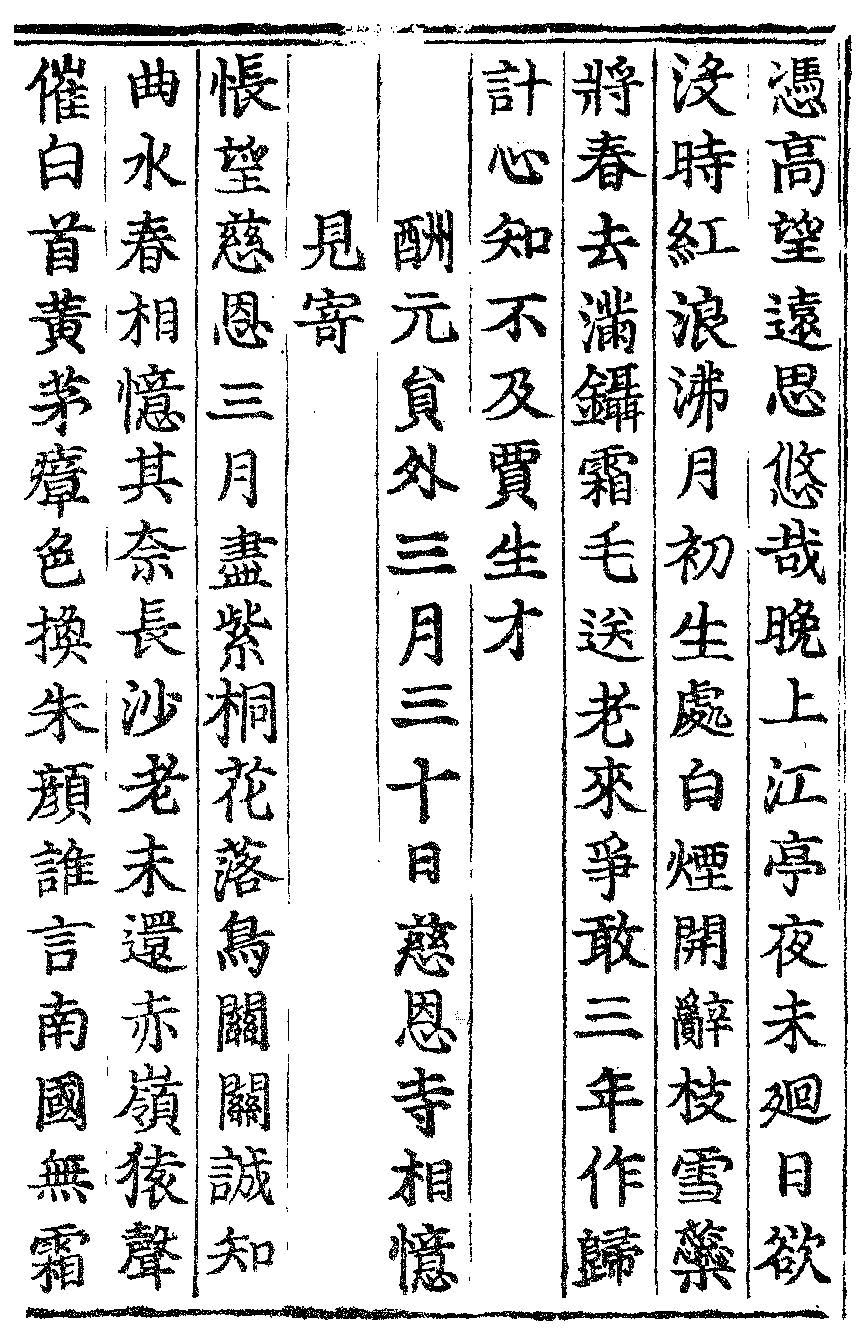 憑高望遠思悠哉晚上江亭夜未廻日欲
沒時紅浪沸月初生處白煙開辭枝雪蘂
將春去滿鑷霜毛送老來爭敢三年作歸
計心知不及賈生才
酬元員外三月三十日慈恩寺相憶
見寄
悵望慈恩三月盡紫桐花落鳥關關誠知
曲水春相憶其奈長沙老未還赤嶺猿聲
催白首黃茅瘴色換朱顔誰言南國無霜